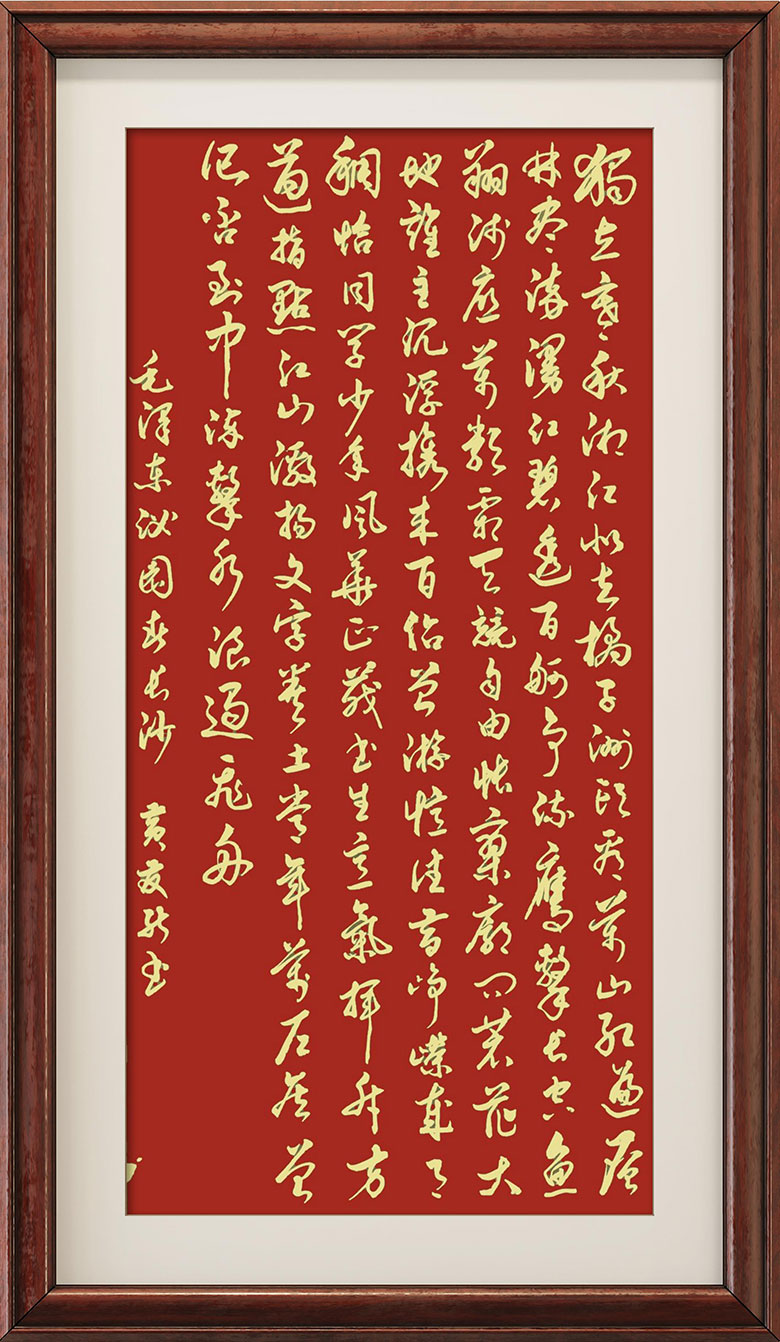 獨立寒秋湘江北去橘子洲头看萬山红遍層
林尽染漫江碧透百舸争流鷹擊长空鱼
翔浅底萬類霜天競自由怅寥廓问苍茫大
地誰主沉浮攜来百侣曾游憶往昔峥嵘歲月
稠恰同学少年風華正茂书生意氣揮斥方
遒指點江山激扬文字糞土当年萬户侯曾
记否到中流擊水浪遏飛舟
毛泽东沁園春长沙 黄友能书